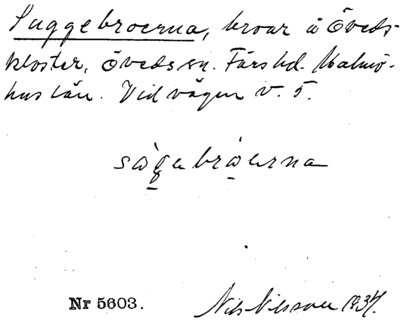 Suggebroerna, broar å Öveds-
kloster, Öveds sn. Färs hd. Malmö-
hus län. Vid vägen v. 5.
sågebråerna
Nr 5603.
Nils Nilsson 1934.